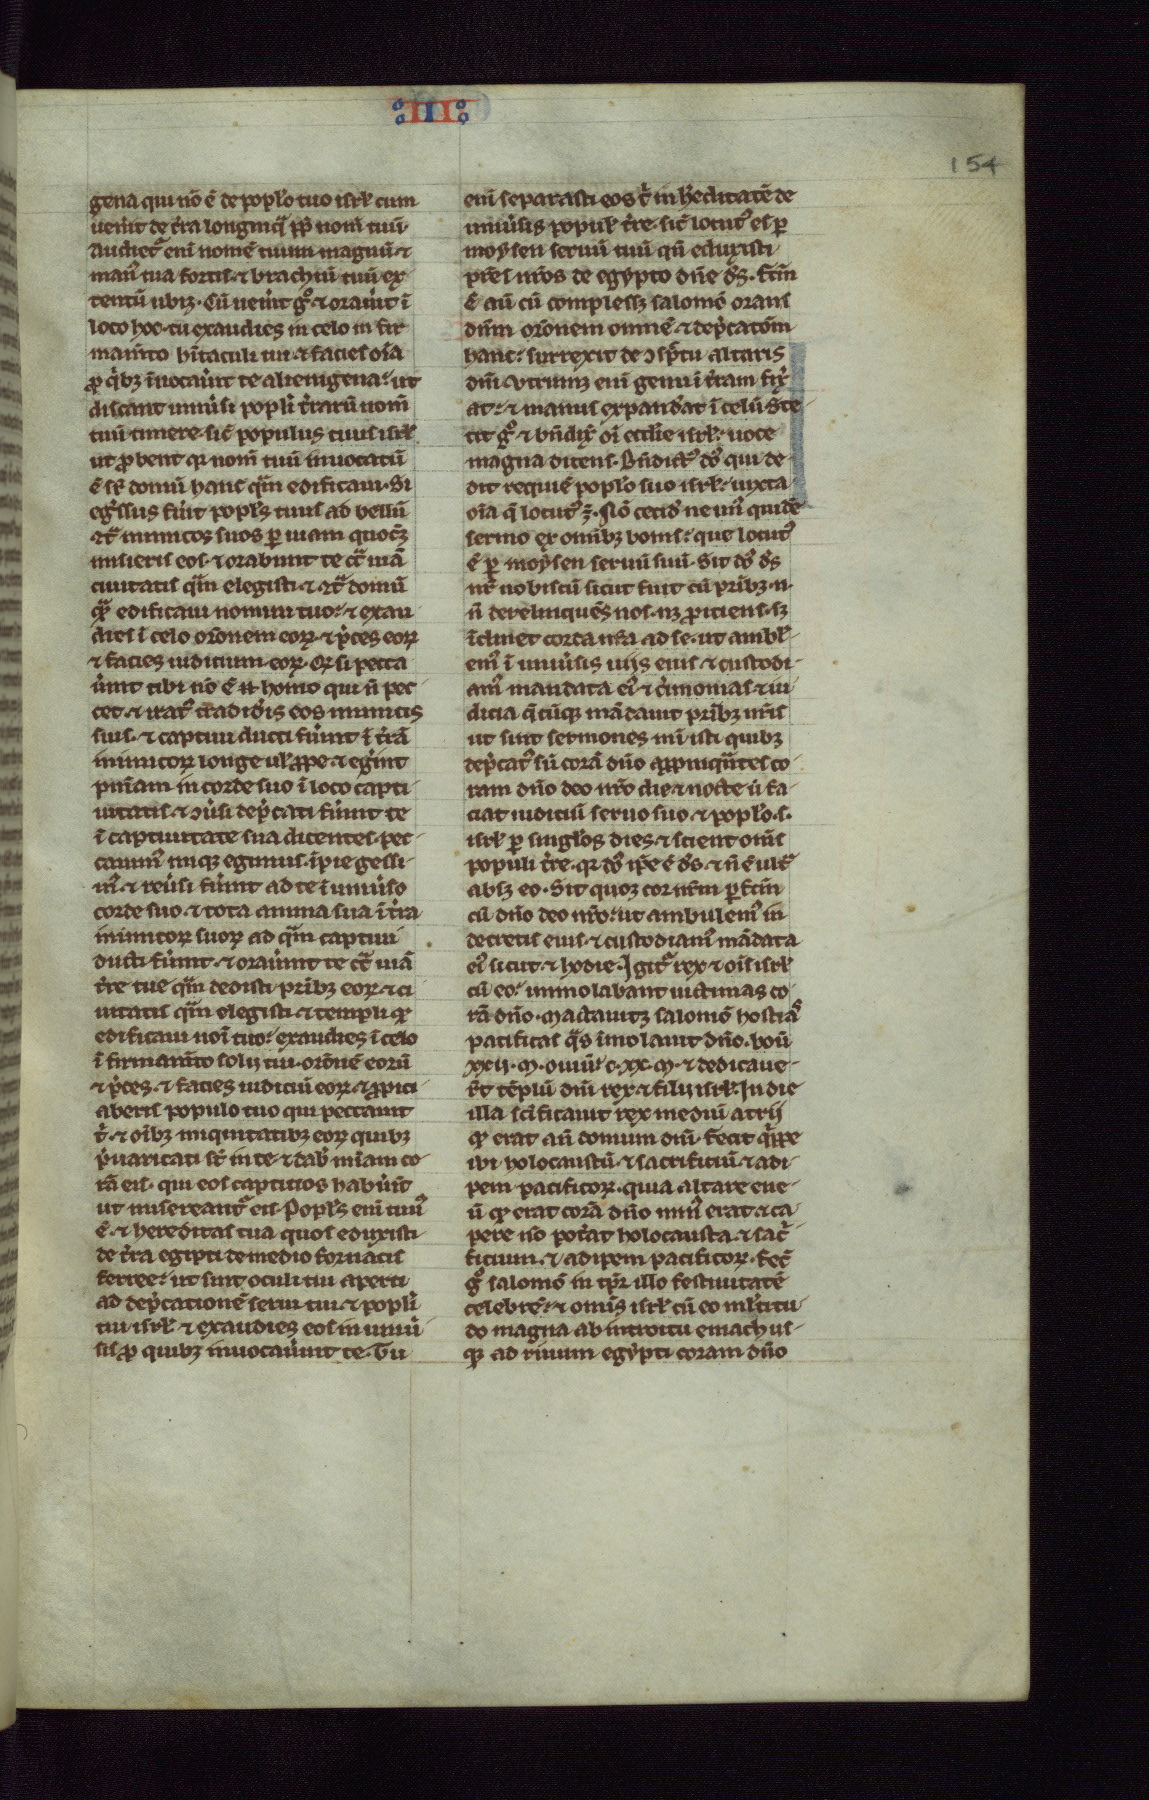 III
154
gena qui nõ ẽ de popl̃o tuo isrl̃ cum
uen̾it de t̾ra longinq̃ ꝓp̃ nom̃ tuũ·
Audiet᷑ eni nomẽ tuum magnũ ⁊
man᷒ tua fortis ⁊ brachiũ tuũ ex
tentũ ubiqꝫ · Cũ uen̾it g᷒ ⁊ orau̾it ĩ
loco hoc · tu exaudies in celo in fir
mam̃to hĩtaculi tui ⁊ facies oĩa
ꝓ qⁱbꝫ ĩuocau̾it te alienigena · ut
discant uniu̾si popl̃i t̾rarũ nom̃
tuũ timere · sic̃ populus tuus isrl̃
ut ꝓbent qꝛ nom̃ tuũ inuocatũ
ẽ sr̃ domũ hanc quã edificaui · Si
eg̾ssus fũit popl̃s tuus ad bellũ
ↄt̃ inimicos suos ꝑ uiam quocũqꝫ
miseris eos · ⁊ orabunt te ↄt̃ uiã
ciuitatis quã elegisti · ⁊ ↄt̃ domũ
quã edificaui nomini tuo · ⁊ exau
dies ĩ celo or̃onem eoꝝ · ⁊ p̾ces eoꝝ
⁊ facies iudicium eoꝝ · Qꝛ si pecca
ũint tibi nõ ẽ .n. homo qui ñ pec
cet · ⁊ irat᷒ tradid̾is eos inimicis
suis · ⁊ captiui ducti fũint ĩ t̾rã
inimicoꝝ longe ul̃ ꝓpe · ⁊ eg̾int
pñiam in corde suo ĩ loco capti
uitatis · ⁊ ↄu̾si dep̾cati fũint te
ĩ captiuitate sua dicentes · pec
cauim᷒ iniqꝫ egimus · ĩpie gessi
m᷒ · ⁊ reu̾si fũint ad te ĩ uniu̾so
corde suo · ⁊ tota anima sua ĩ t̾ra
inimicoꝝ suoꝝ ad quã captiui
ducti fũint · ⁊ orau̾int te ↄt̃ uiã
t̾re tue quã dedisti prĩbꝫ eoꝝ · ⁊ ci
uitatis quã elegisti · ⁊ templi qđ
edificaui noĩ tuo · exaudies ĩ celo
ĩ firmam̃to solij tui · or̃onẽ eorũ
⁊ p̾ces · ⁊ facies iudiciũ eoꝝ · ⁊ ꝓpici
aberis populo tuo qui peccauit
t̾ · ⁊ oĩbꝫ iniquitatibꝫ eoꝝ quibꝫ
p̾uaricati sũt in te · ⁊ dab̾ miãm co
rã eis · qui eos captiuos habũit
ut misereant᷑ eis · Popl̃s eni tuu᷒
ẽ · ⁊ hereditas tua quos eduxisti
de t̾ra egipti de medio fornacis
ferree · ut sint oculi tui aperti
ad dep̾cationẽ serui tui · ⁊ popl̃i
tui isrl̃ · ⁊ exaudies eos in uniu̾
sis ꝓ quibꝫ inuocau̾int te · Tu
eni separasti eos t̾ in h̾editatẽ de
uniu̾sis popul̃ t̾re · sic̃ locut᷒ es ꝑ
moysen seruũ tuũ qñ eduxisti
pr̃es nr̃os de egypto dñe d̃s · Fc̃m
ẽ aũ cũ complessꝫ salomõ orans
dñm or̃onem omnẽ ⁊ dep̾catõm
hanc · surrexit de ↄspc̃u altaris
dñi · utrumqꝫ eni genu ĩ t̾ram fix̾
at · ⁊ manus expand̾at ĩ celũ · Ste
tit g᷒ ⁊ bñdix̃ oĩ eccl̃ie isrl̃ · uoce
magna dicens · Bñdict᷒ dñs qui de
dit requiẽ popl̃o suo isrl̃ · iuxta
oĩa q̃ locut᷒ ẽ · Nõ cecid̾ ne un᷒ quidẽ
sermo ex omĩbꝫ bonis · que locut᷒
ẽ ꝑ moysen seruũ suũ · Sit dñs d̃s
nr̃ nobiscũ sicut fuit cũ prĩbꝫ .n.
ñ derelinquẽs nos · nꝫ ꝓiciens · sꝫ
ĩclinet corda nr̃a ad se · ut ambl̃
em᷒ ĩ uniu̾sis uijs eius · ⁊ custodi
am᷒ mandata ei᷒ · ⁊ c̾imonias · ⁊ iu
dicia q̃cũqꝫ mãdauit prĩbꝫ nr̃is
ut sint sermones mei isti quibꝫ
dep̾cat᷒ sũ corã dño appinquãtes co
ram dño deo nr̃o die ⁊ nocte ut fa
ciat iudiciũ seruo suo · ⁊ popl̃o .s.
isrl̃ ꝑ singl̃os dies · ⁊ scient omĩs
populi t̾re · qꝛ dñs ip̃e ẽ d̃s · ⁊ ñ ẽ ult̃
absqꝫ eo · Sit quoqꝫ cor nr̃m ꝑfc̃m
cũ dño deo nr̃o · ut ambulem᷒ in
decretis eius · ⁊ custodiam᷒ mãdata
ei᷒ sicut ⁊ hodie · Igit᷑ rex ⁊ oĩs isrl̃
cũ eo · immolabant uictimas co
rã dño · Mactauitqꝫ salomõ hostias
pacificas quãs ĩmolauit dño · boũ
xxij · m · ouiũ · c · xx · m · ⁊ dedicaue
r̃t tẽplũ dñi rex ⁊ filij isrl̃ · In die
illa sc̃ificauit rex mediũ atrij
qđ erat an̾ domum dñi · Fecit qͥppe
ibi holocaustũ · ⁊ sacrificiũ · ⁊ adi
pem pacificoꝝ · quia altare ene
ũ qđ erat corã dño min᷒ erat · ⁊ ca
pere nõ pot̾at holocausta · ⁊ sac̾
ficium · ⁊ adipem pacificoꝝ · Fec̃
g᷒ salomõ in tp̃r illo festiuitatẽ
celebrẽ · ⁊ omĩs isrl̃ cũ eo ml̃titu
do magna ab introitu emach us
qꝫ ad riuum egypti coram dño